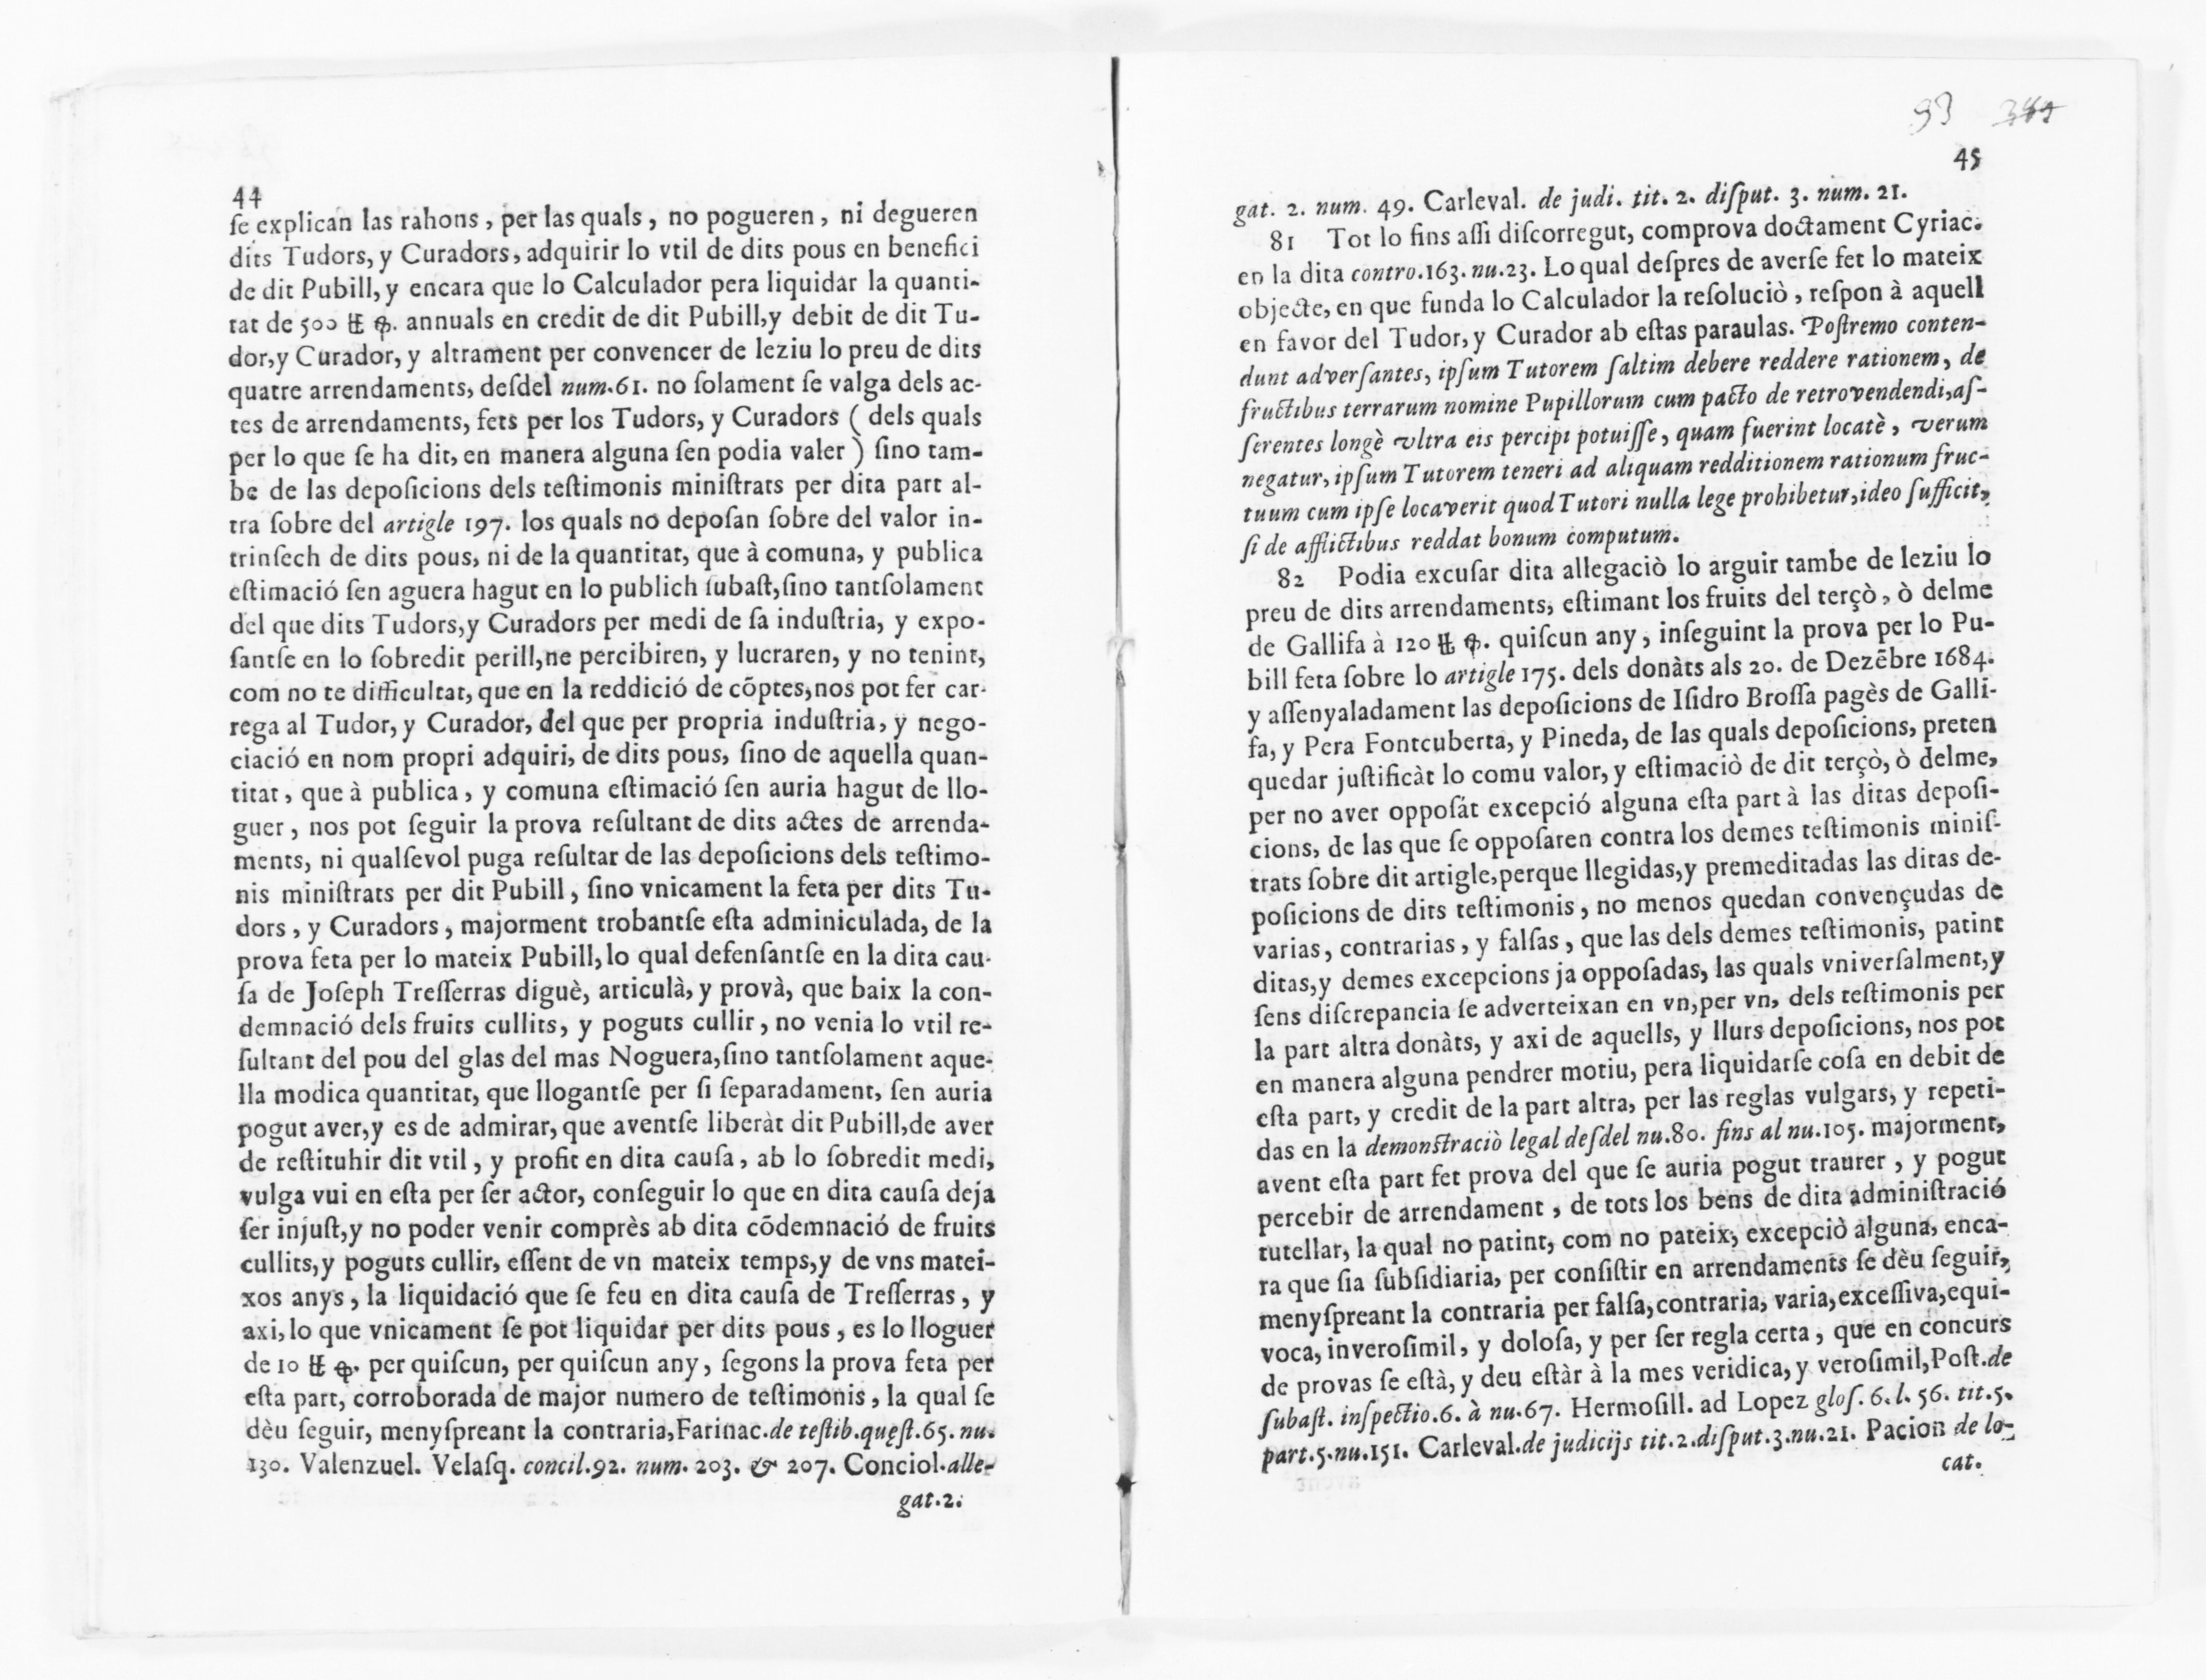 44
ſe explican las rahons, per las quals, no pogueren, ni degueren
dits Tudors, y Curadors, adquirir lo vtil de dits pous en benefici
de dit Pubill, y encara que lo Calculador pera liquidar la quanti-
tat de 500 annuals en credit de dit Pubill, y debit de dit Tu-
dor, y Curador, y altrament per convencer de leziu lo preu de dits
quatre arrendaments, deſdel num. 61. no ſolament ſe valga dels ac-
tes de arrendaments, fets per los Tudors, y Curadors ( dels quals
per lo que ſe ha dit, en manera alguna ſen podia valer ) ſino tam-
be de las depoſicions dels teſtimonis miniſtrats per dita part al-
tra ſobre del artigle 197. los quals no depoſan ſobre del valor in-
trinſech de dits pous, ni de la quantitat, que à comuna, y publica
eſtimació ſen aguera hagut en lo publich ſubaſt, ſino tantſolament
del que dits Tudors, y Curadors per medi de ſa induſtria, y expo-
ſantſe en lo ſobredit perill, ne percibiren, y lucraren, y no tenint,
com no te difficultat, que en la reddició de cõptes, nos pot fer car-
rega al Tudor, y Curador, del que per propria induſtria, y nego-
ciació en nom propri adquiri, de dits pous, ſino de aquella quan-
titat, que à publica, y comuna eſtimació ſen auria hagut de llo-
guer, nos pot ſeguir la prova reſultant de dits actes de arrenda-
ments, ni qualſevol puga reſultar de las depoſicions dels teſtimo-
nis miniſtrats per dit Pubill, ſino vnicament la feta per dits Tu-
dors, y Curadors, majorment trobantſe eſta adminiculada, de la
prova feta per lo mateix Pubill, lo qual defenſantſe en la dita cau-
ſa de Joſeph Treſſerras diguè, articulà, y provà, que baix la con-
demnació dels fruits cullits, y poguts cullir, no venia lo vtil re-
ſultant del pou del glas del mas Noguera, ſino tantſolament aque-
lla modica quantitat, que llogantſe per ſi ſeparadament, ſen auria
pogut aver, y es de admirar, que aventſe liberàt dit Pubill, de aver
de reſtituhir dit vtil, y profit en dita cauſa, ab lo ſobredit medi,
vulga vui en eſta per ſer actor, conſeguir lo que en dita cauſa deja
ſer injuſt, y no poder venir comprès ab dita cõdemnació de fruits
cullits, y poguts cullir, eſſent de vn mateix temps, y de vns matei-
xos anys, la liquidació que ſe feu en dita cauſa de Treſſerras, y
axi, lo que vnicament ſe pot liquidar per dits pous, es lo lloguer
de 10 per quiſcun, per quiſcun any, ſegons la prova feta per
eſta part, corroborada de major numero de teſtimonis, la qual ſe
dèu ſeguir, menyſpreant la contraria, Farinac. de teſtib. quęſt. 65. nu.
130. Valenzuel. Velaſq. concil. 92. num. 203. & 207. Conciol. alle-
gat. 2.
93
45
gat. 2. num. 49. Carleval. de judi. tit. 2. diſput. 3. num. 21.
81 Tot lo fins aſſi diſcorregut, comprova doctament Cyriac.
en la dita contro. 163. nu. 23. Lo qual deſpres de averſe fet lo mateix
objecte, en que funda lo Calculador la reſoluciò, reſpon à aquell
en favor del Tudor, y Curador ab eſtas paraulas. Poſtremo conten-
dunt adverſantes, ipſum Tutorem ſaltim debere reddere rationem, de
fructibus terrarum nomine Pupillorum cum pacto de retrovendendi, aſ-
ſerentes longè vltra eis percipi potuiſſe, quam fuerint locatè, verum
negatur, ipſum Tutorem teneri ad aliquam redditionem rationum fruc-
tuum cum ipſe locaverit quod Tutori nulla lege prohibetur, ideo ſufficit,
ſi de afflictibus reddat bonum computum.
82 Podia excuſar dita allegaciò lo arguir tambe de leziu lo
preu de dits arrendaments, eſtimant los fruits del terçò, ò delme
de Gallifa à 120 quiſcun any, inſeguint la prova per lo Pu-
bill feta ſobre lo artigle 175. dels donàts als 20. de Dezẽbre 1684.
y aſſenyaladament las depoſicions de Iſidro Broſſa pagès de Galli-
fa, y Pera Fontcuberta, y Pineda, de las quals depoſicions, preten
quedar juſtificàt lo comu valor, y eſtimaciò de dit terçò, ò delme,
per no aver oppoſát excepció alguna eſta part à las ditas depoſi-
cions, de las que ſe oppoſaren contra los demes teſtimonis miniſ-
trats ſobre dit artigle, perque llegidas, y premeditadas las ditas de-
poſicions de dits teſtimonis, no menos quedan convençudas de
varias, contrarias, y falſas, que las dels demes teſtimonis, patint
ditas, y demes excepcions ja oppoſadas, las quals vniverſalment, y
ſens diſcrepancia ſe adverteixan en vn, per vn, dels teſtimonis per
la part altra donàts, y axi de aquells, y llurs depoſicions, nos pot
en manera alguna pendrer motiu, pera liquidarſe coſa en debit de
eſta part, y credit de la part altra, per las reglas vulgars, y repeti-
das en la demonſtraciò legal deſdel nu. 80. fins al nu. 105. majorment,
avent eſta part fet prova del que ſe auria pogut traurer, y pogut
percebir de arrendament, de tots los bens de dita adminiſtració
tutellar, la qual no patint, com no pateix, excepciò alguna, enca-
ra que ſia ſubſidiaria, per conſiſtir en arrendaments ſe dèu ſeguir,
menyſpreant la contraria per falſa, contraria, varia, exceſſiva, equi-
voca, inveroſimil, y doloſa, y per ſer regla certa, que en concurs
de provas ſe eſtà, y deu eſtàr à la mes veridica, y veroſimil, Poſt. de
ſubaſt. inſpectio. 6. à nu. 67. Hermoſill. ad Lopez gloſ. 6. l. 56. tit. 5.
part. 5. nu. 151. Carleval. de judicijs tit. 2. diſput. 3. nu. 21. Pacion de lo-
cat.